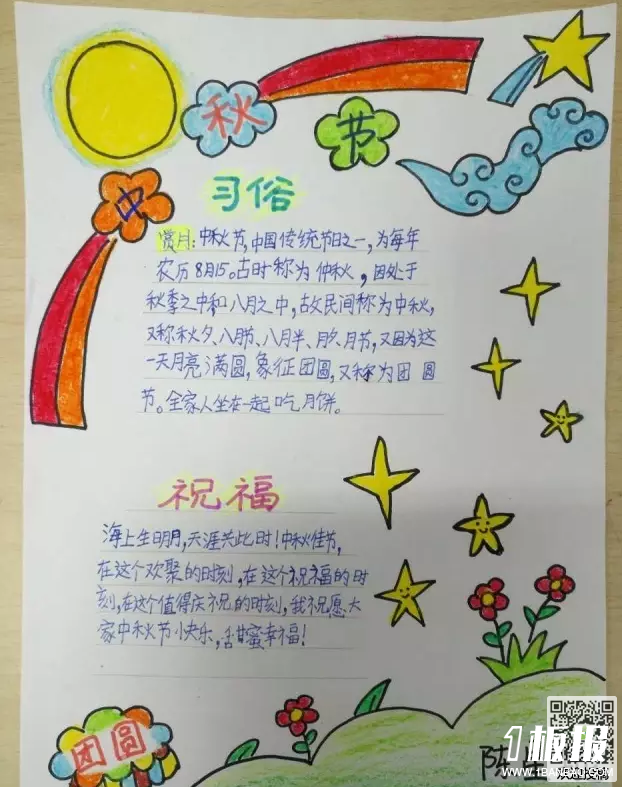 中秋节
习俗
赏月：中秋节，中国传统节日之一，为每年
农历8月15。古时称为仲秋，因处于
秋季之中和八月之中，故民间称为中秋，
又称秋夕、八月节、八月半、月夕、月节，又因为这
一天月亮满圆，象征团圆，又称为团圆
节。全家人坐在一起吃月饼。
祝福
海上生明月，天涯共此时！中秋佳节，
在这个欢聚的时刻，在这个祝福的时
刻，在这个值得庆祝的时刻，我祝愿大
家中秋节快乐，甜蜜幸福！
团圆
陈
1板报
WWW.1BANBAO.COM